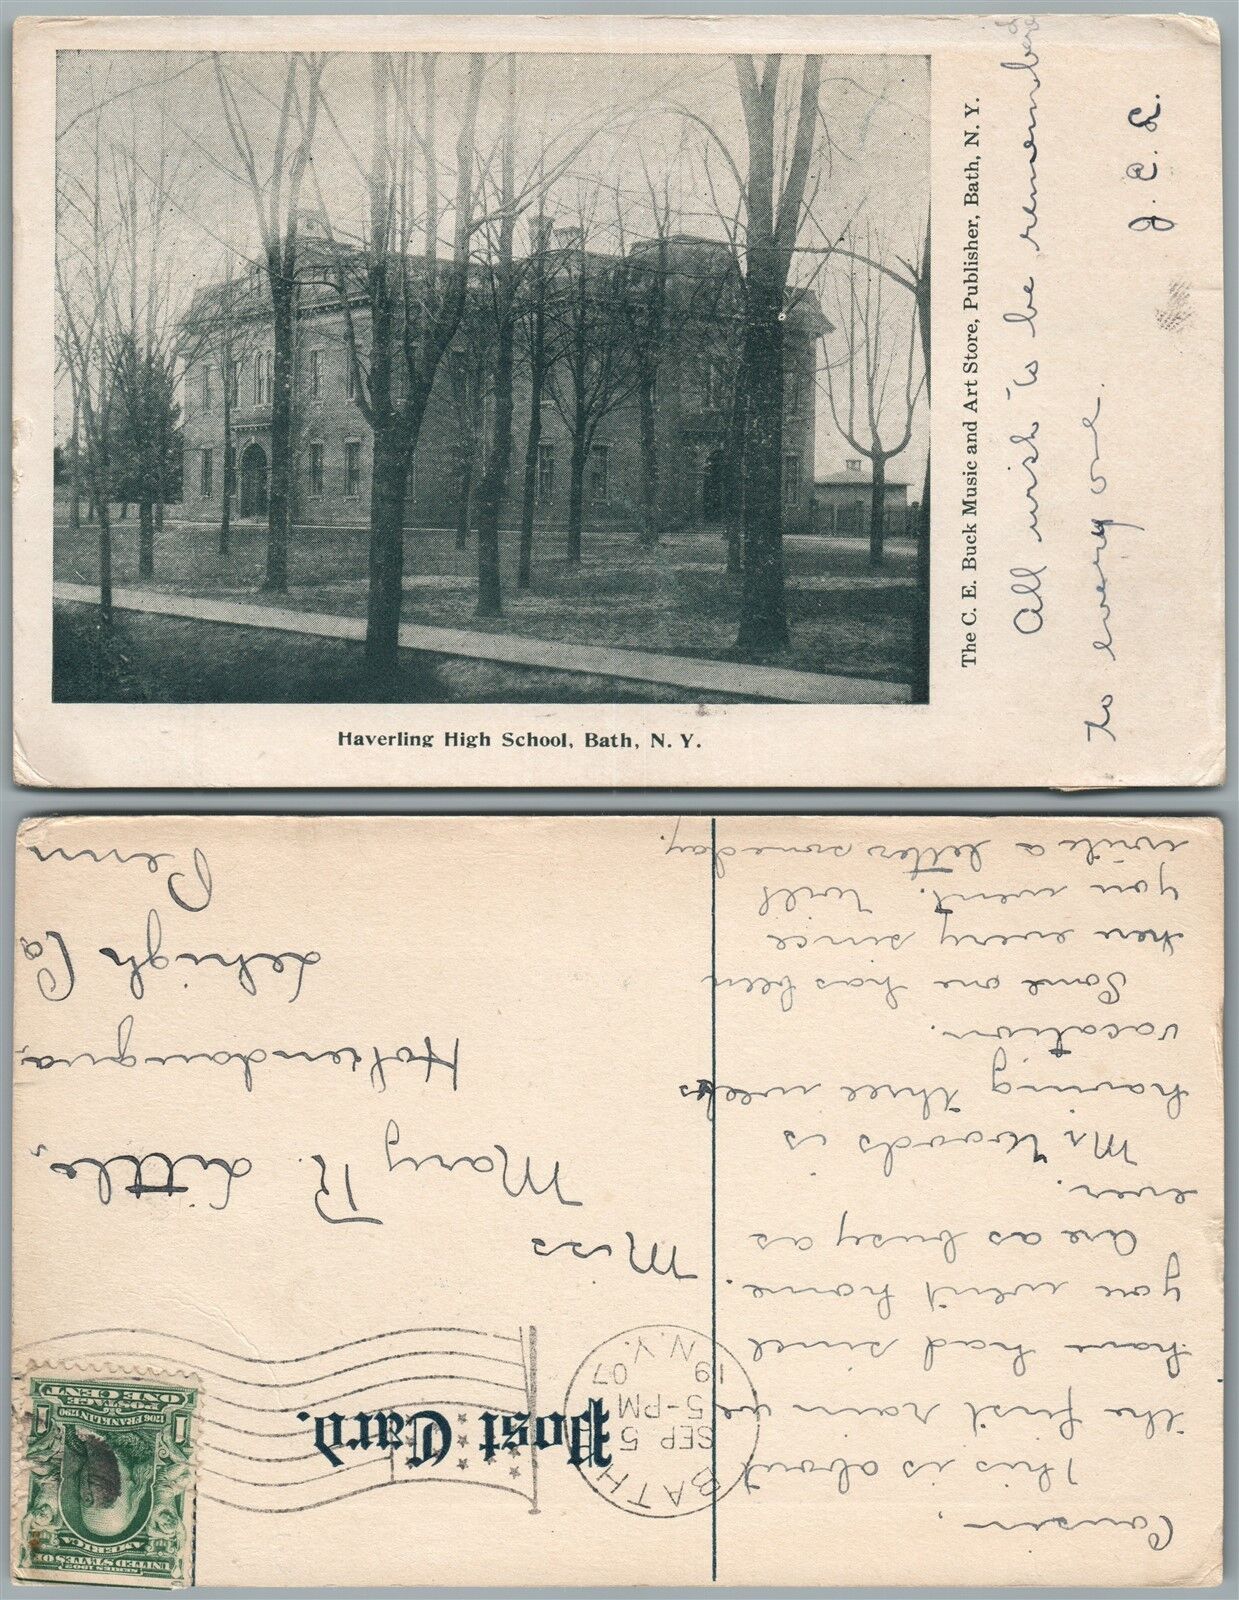 Haverling High School, Bath, N. Y.
The C. E. Buck Music and Art Store, Publisher, Bath, N. Y.
All wish to be remembered
to every one.
J. C. L.
Post Card.
BATH
SEP 5
5-PM
19 07
N.Y.
SERIES 1902
UNITED STATES OF
AMERICA
1706 FRANKLIN 1790
POSTAGE
1 ONE CENT 1
Cousin,
This is about
the first rain we
have had since
you went home.
Are as busy as
ever.
Mr Woods is
having three weeks
vacation.
Some one has been
here every since
you went. Will
write a letter someday.
Miss
Mary R. Little,
Hokendauqua,
Lehigh Co
Penn